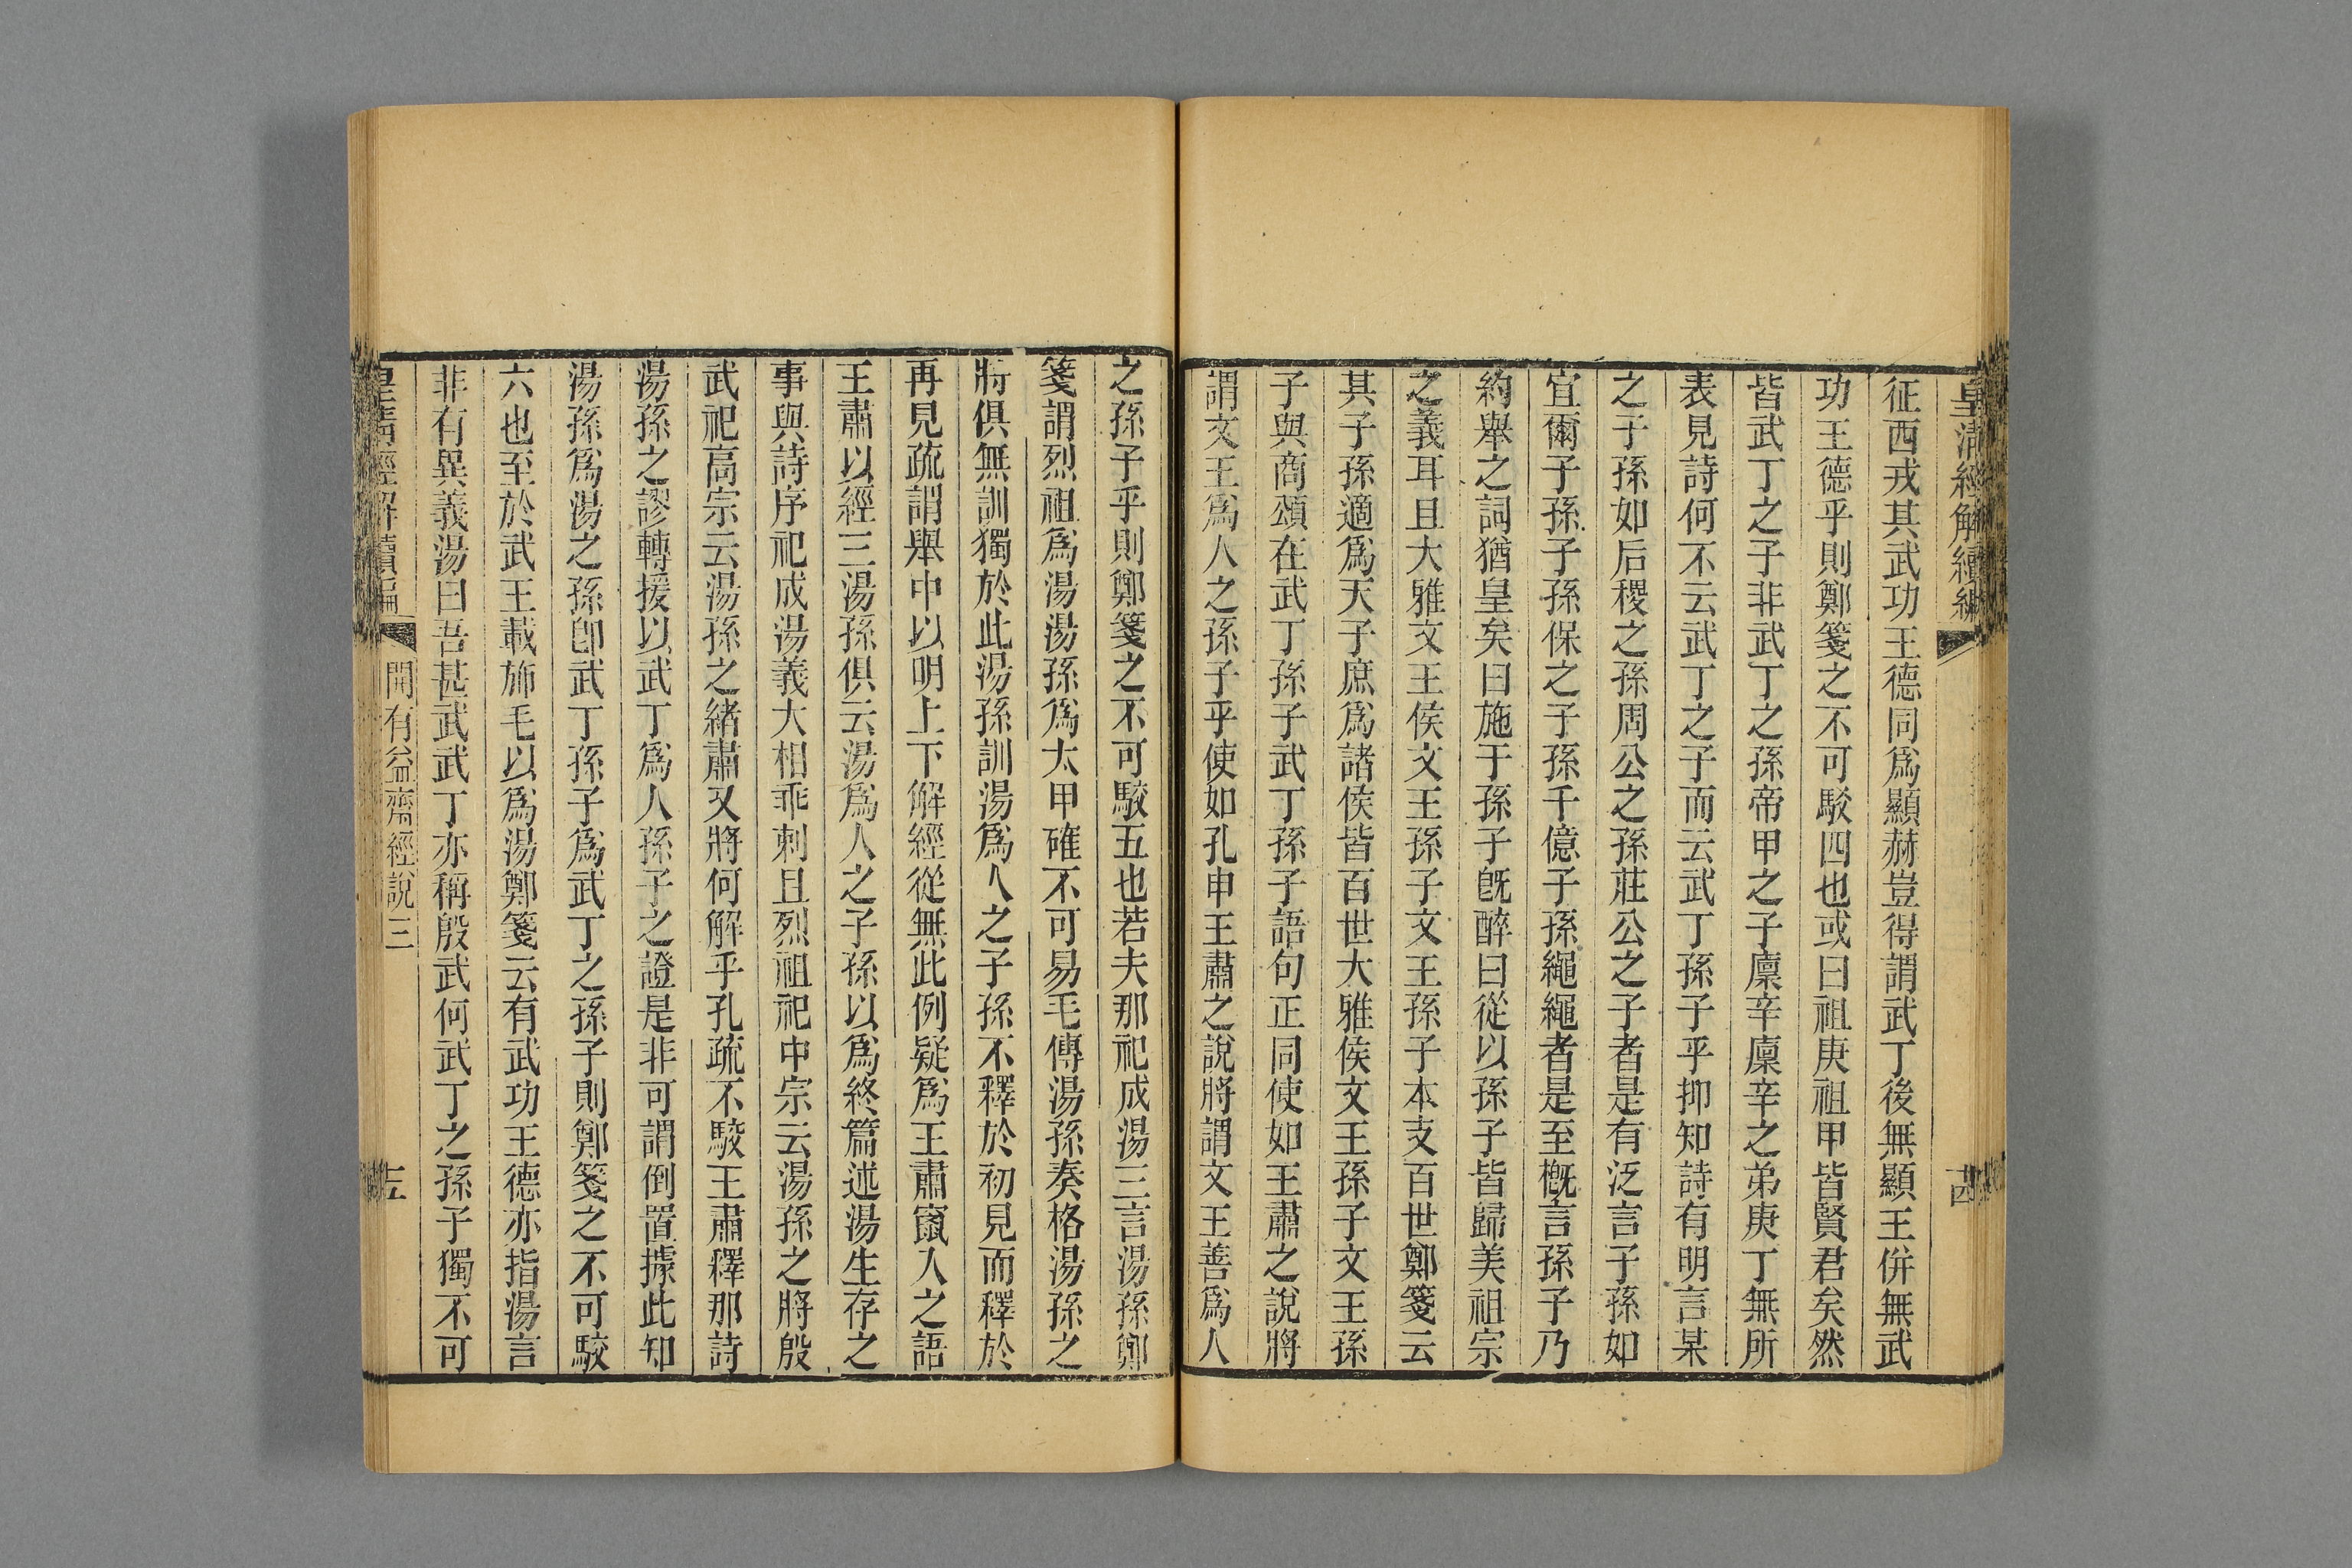 皇清經解續編
征西戎其武功王德同爲顯赫豈得謂武丁後無顯王併無武
功王德乎則鄭箋之不可駮四也或曰祖庚祖甲皆賢君矣然
皆武丁之子非武丁之孫帝甲之子廩辛廩辛之弟庚丁無所
表見詩何不云武丁之子而云武丁孫子乎抑知詩有明言某
之子孫如后稷之孫周公之孫莊公之子者是有泛言子孫如
宜爾子孫子孫保之子孫千億子孫繩繩者是至槪言孫子乃
約舉之詞猶皇矣曰施于孫子旣醉曰從以孫子皆歸美祖宗
之義耳且大雅文王侯文王孫子文王孫子本支百世鄭箋云
其子孫適爲天子庶爲諸侯皆百世大雅侯文王孫子文王孫
子與商頌在武丁孫子武丁孫子語句正同使如王肅之說將
謂文王爲人之孫子乎使如孔申王肅之說將謂文王善爲人
之孫子乎則鄭箋之不可駮五也若夫那祀成湯三言湯孫鄭
箋謂烈祖爲湯湯孫爲太甲確不可易毛傳湯孫奏格湯孫之
將俱無訓獨於此湯孫訓湯爲人之子孫不釋於初見而釋於
再見疏謂舉中以明上下解經從無此例疑爲王肅竄入之語
王肅以經三湯孫俱云湯爲人之子孫以爲終篇述湯生存之
事與詩序祀成湯義大相乖剌且烈祖祀中宗云湯孫之將殷
武祀高宗云湯孫之緒肅又將何解乎孔疏不駮王肅釋那詩
湯孫之謬轉援以武丁爲人孫子之證是非可謂倒置據此知
湯孫爲湯之孫卽武丁孫子爲武丁之孫子則鄭箋之不可駮
六也至於武王載旆毛以爲湯鄭箋云有武功王德亦指湯言
非有異義湯曰吾甚武武丁亦稱殷武何武丁之孫子獨不可
皇清經解續編
開有益齋經說三